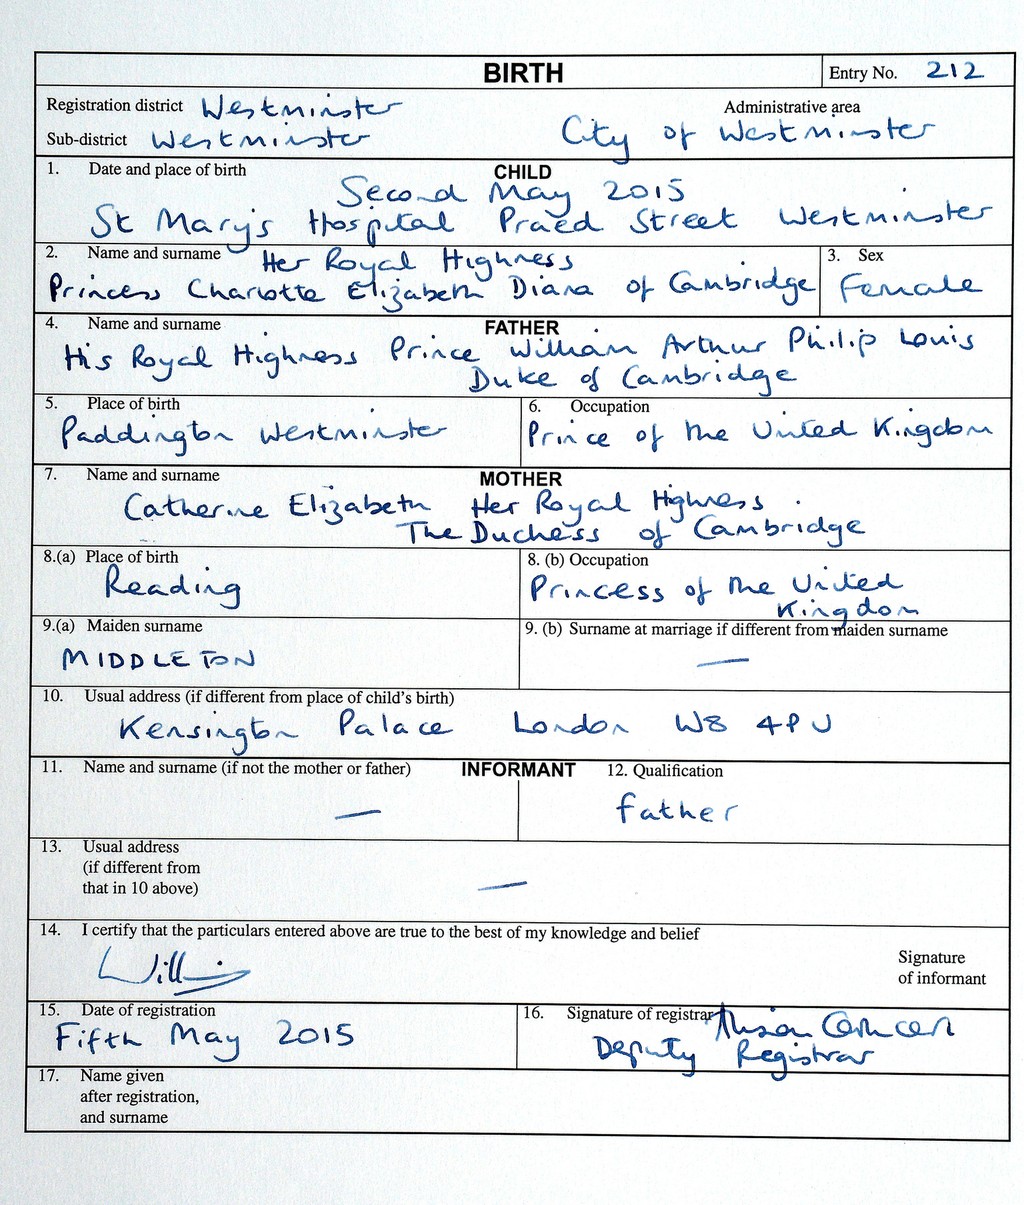 BIRTH
Entry No. 212
Registration district Westminster
Administrative area
Sub-district Westminster
City of Westminster
1. Date and place of birth
CHILD
Second May 2015
St Mary's Hospital Praed Street Westminster
2. Name and surname
Her Royal Highness
Princess Charlotte Elizabeth Diana of Cambridge
3. Sex
Female
4. Name and surname
FATHER
His Royal Highness Prince William Arthur Philip Louis
Duke of Cambridge
5. Place of birth
Paddington Westminster
6. Occupation
Prince of the United Kingdom
7. Name and surname
MOTHER
Catherine Elizabeth Her Royal Highness
The Duchess of Cambridge
8.(a) Place of birth
Reading
8. (b) Occupation
Princess of the United
Kingdom
9.(a) Maiden surname
MIDDLETON
9. (b) Surname at marriage if different from maiden surname
—
10. Usual address (if different from place of child's birth)
Kensington Palace London W8 4PU
11. Name and surname (if not the mother or father)
—
INFORMANT
12. Qualification
Father
13. Usual address
(if different from
that in 10 above)
—
14. I certify that the particulars entered above are true to the best of my knowledge and belief
William
Signature
of informant
15. Date of registration
Fifth May 2015
16. Signature of registrar
Alison
Deputy Registrar
17. Name given
after registration,
and surname